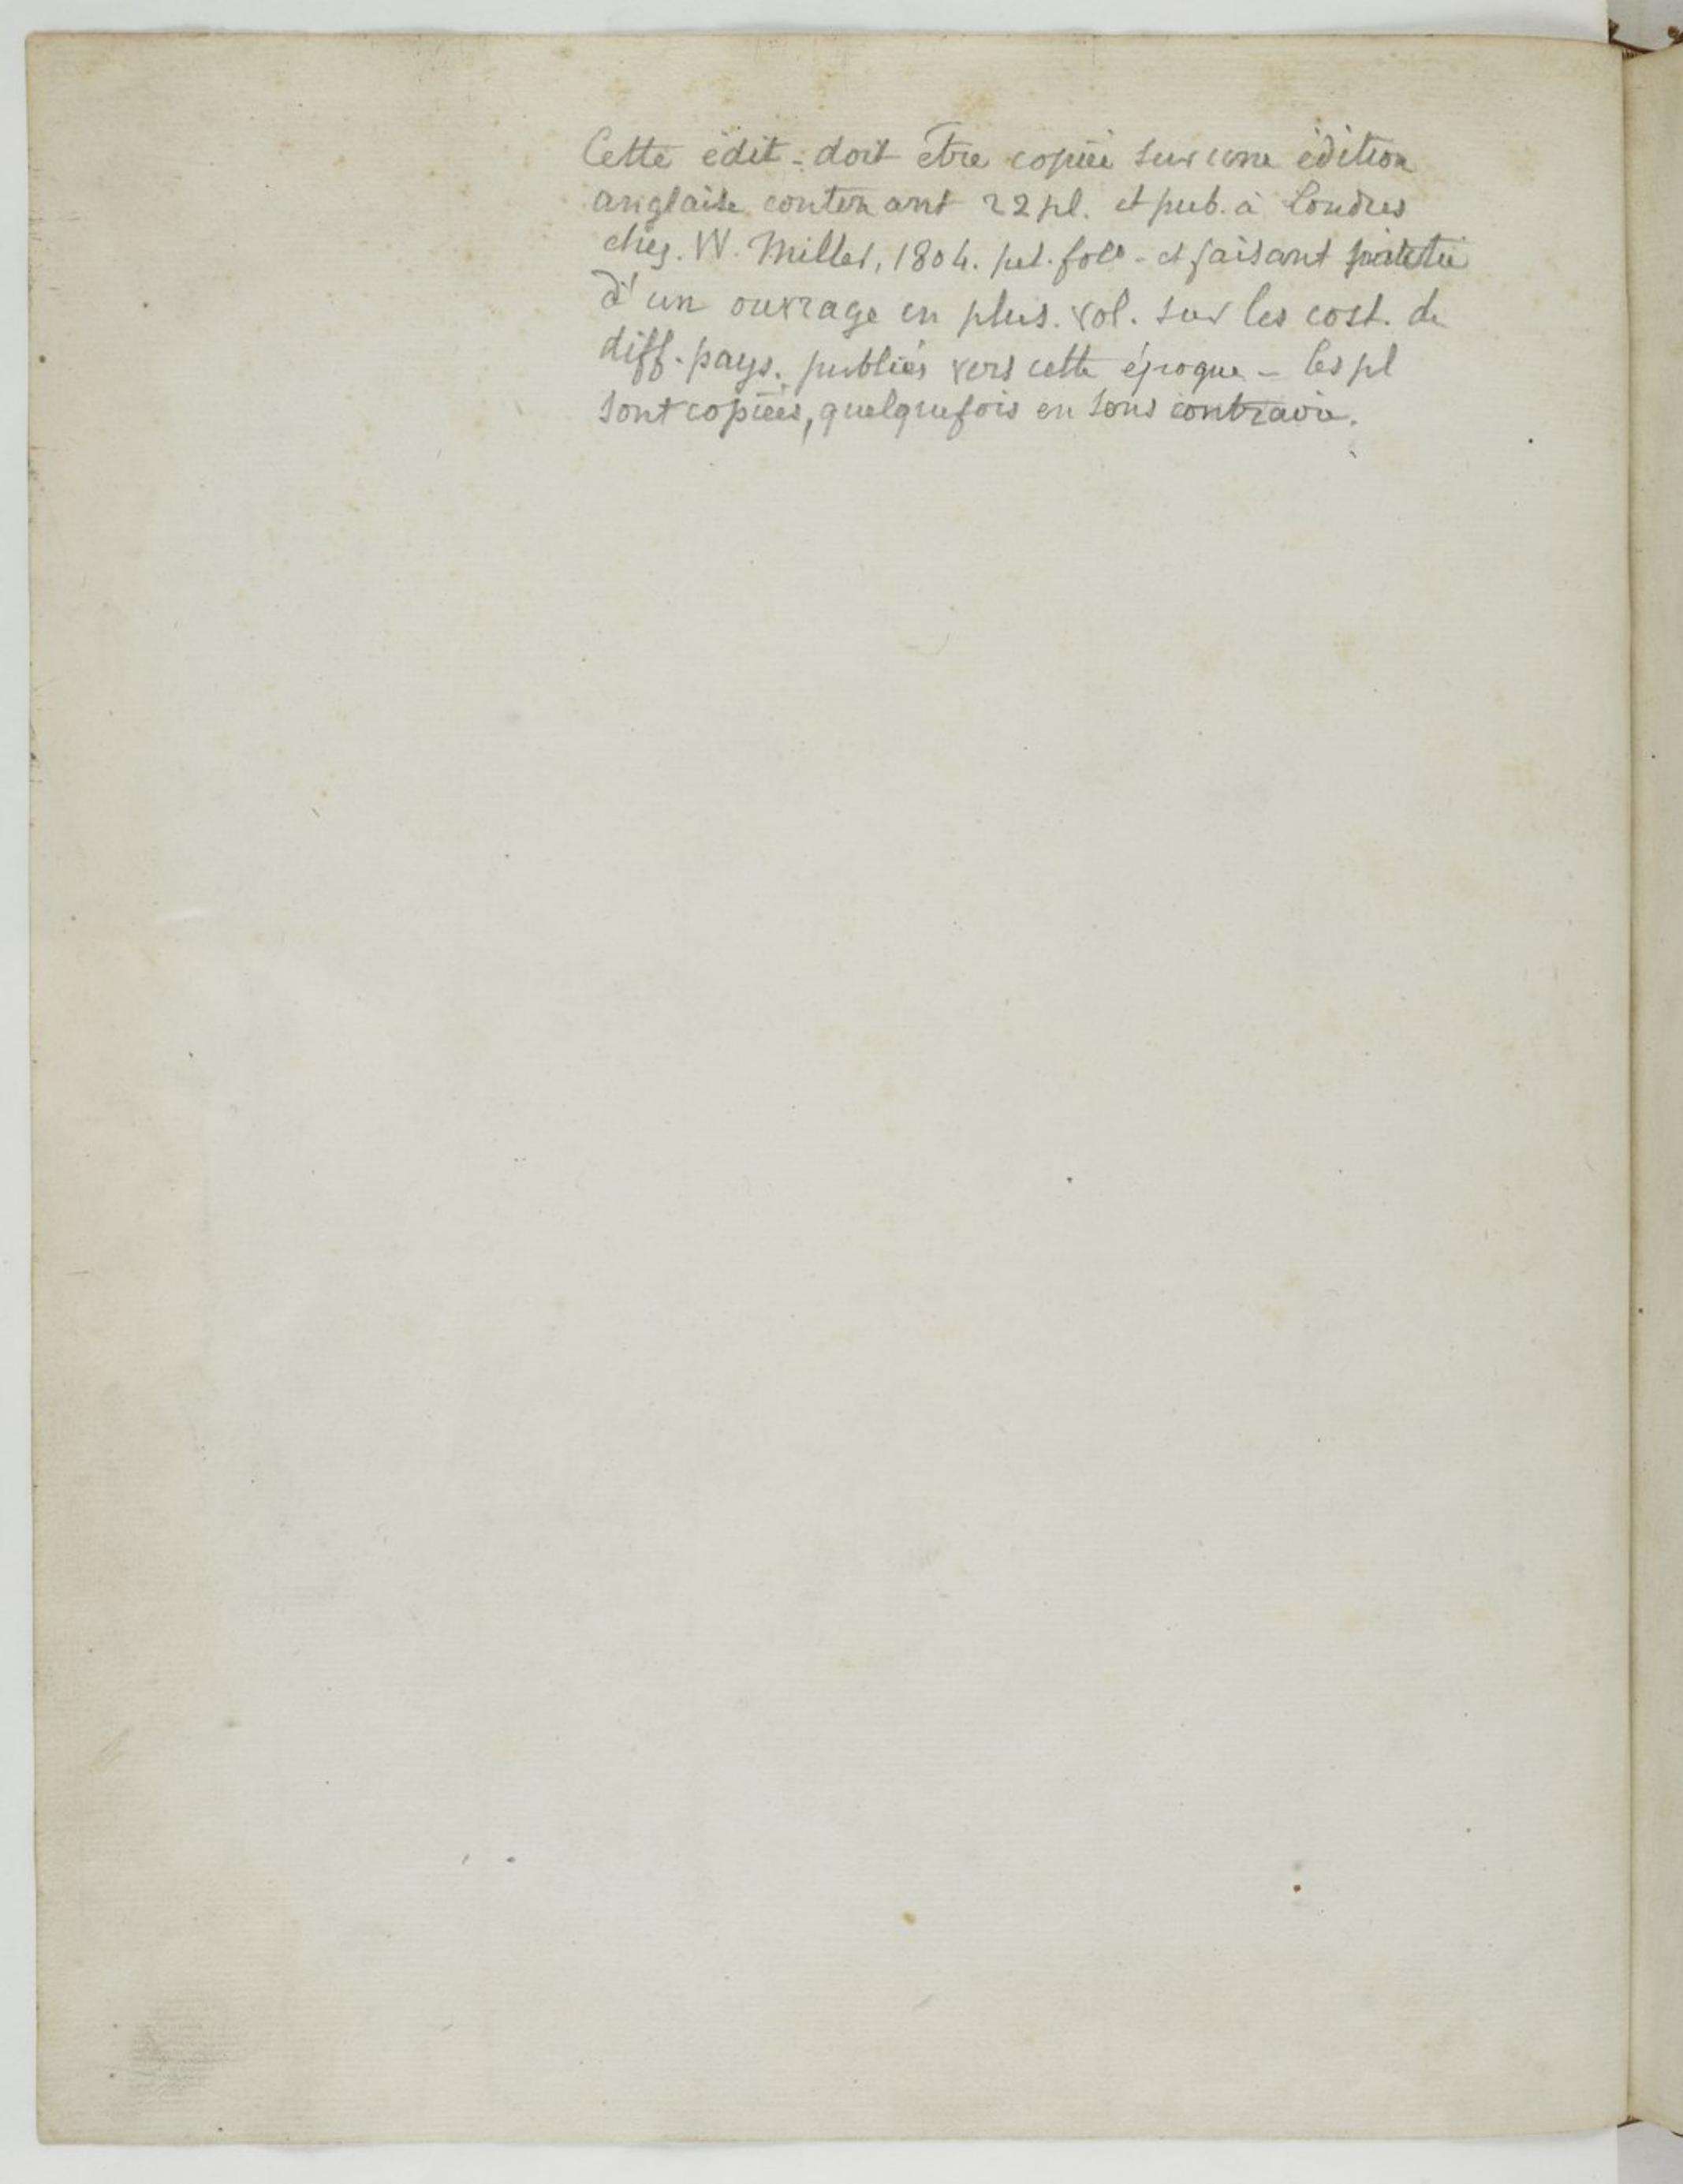 Cette édit. doit être copiée sur une édition
anglaise contenant 22 pl. et pub. à Londres
chez. W. Miller, 1804. pet. fol° - et faisant partie
d'un ouvrage en plus. vol. sur les cost. de
diff. pays. publiés vers cette époque - les pl
sont copiées, quelquefois en sens contraire.